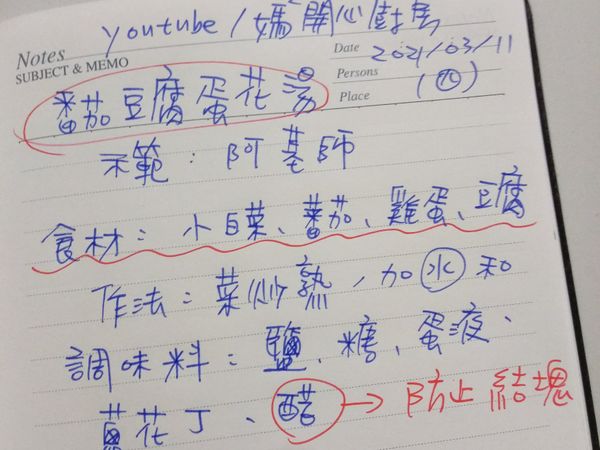 youtube/媽〃開心廚房
Notes
SUBJECT & MEMO
Date 2021/03/11
Persons (四)
Place
番茄豆腐蛋花湯
示範：阿基師
食材：小白菜、蕃茄、雞蛋、豆腐
作法：菜炒熟，加水和
調味料：鹽、糖、蛋液、
蔥花丁、醋→防止結塊